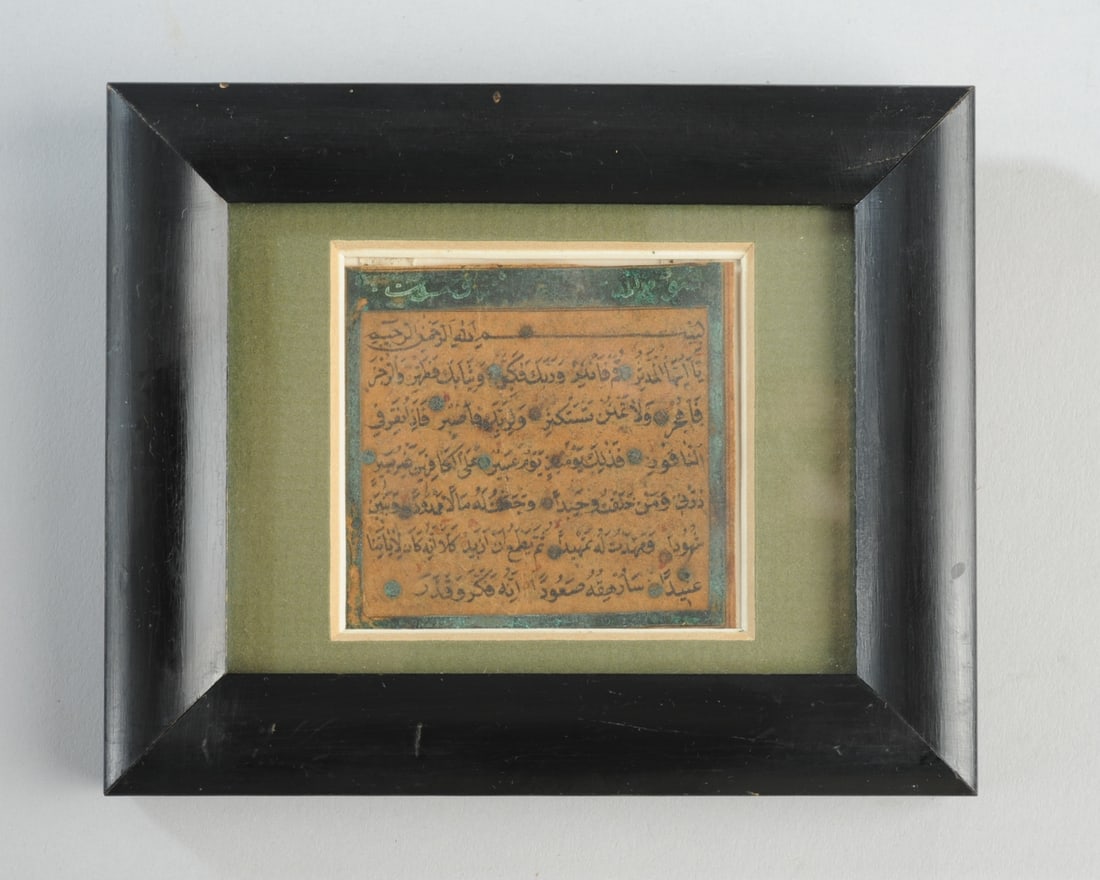 بسم الله الرحمن الرحيم
يا ايها المدثر قم فانذر وربك فكبر وثيابك فطهر والرجز
فاهجر ولا تمنن تستكثر ولربك فاصبر فاذا نقر في
الناقور فذلك يومئذ يوم عسير على الكافرين غير يسير
ذرني ومن خلقت وحيدا وجعلت له مالا ممدودا وبنين
شهودا ومهدت له تمهيدا ثم يطمع ان ازيد كلا انه كان لاياتنا
عنيدا سأرهقه صعودا انه فكر وقدر